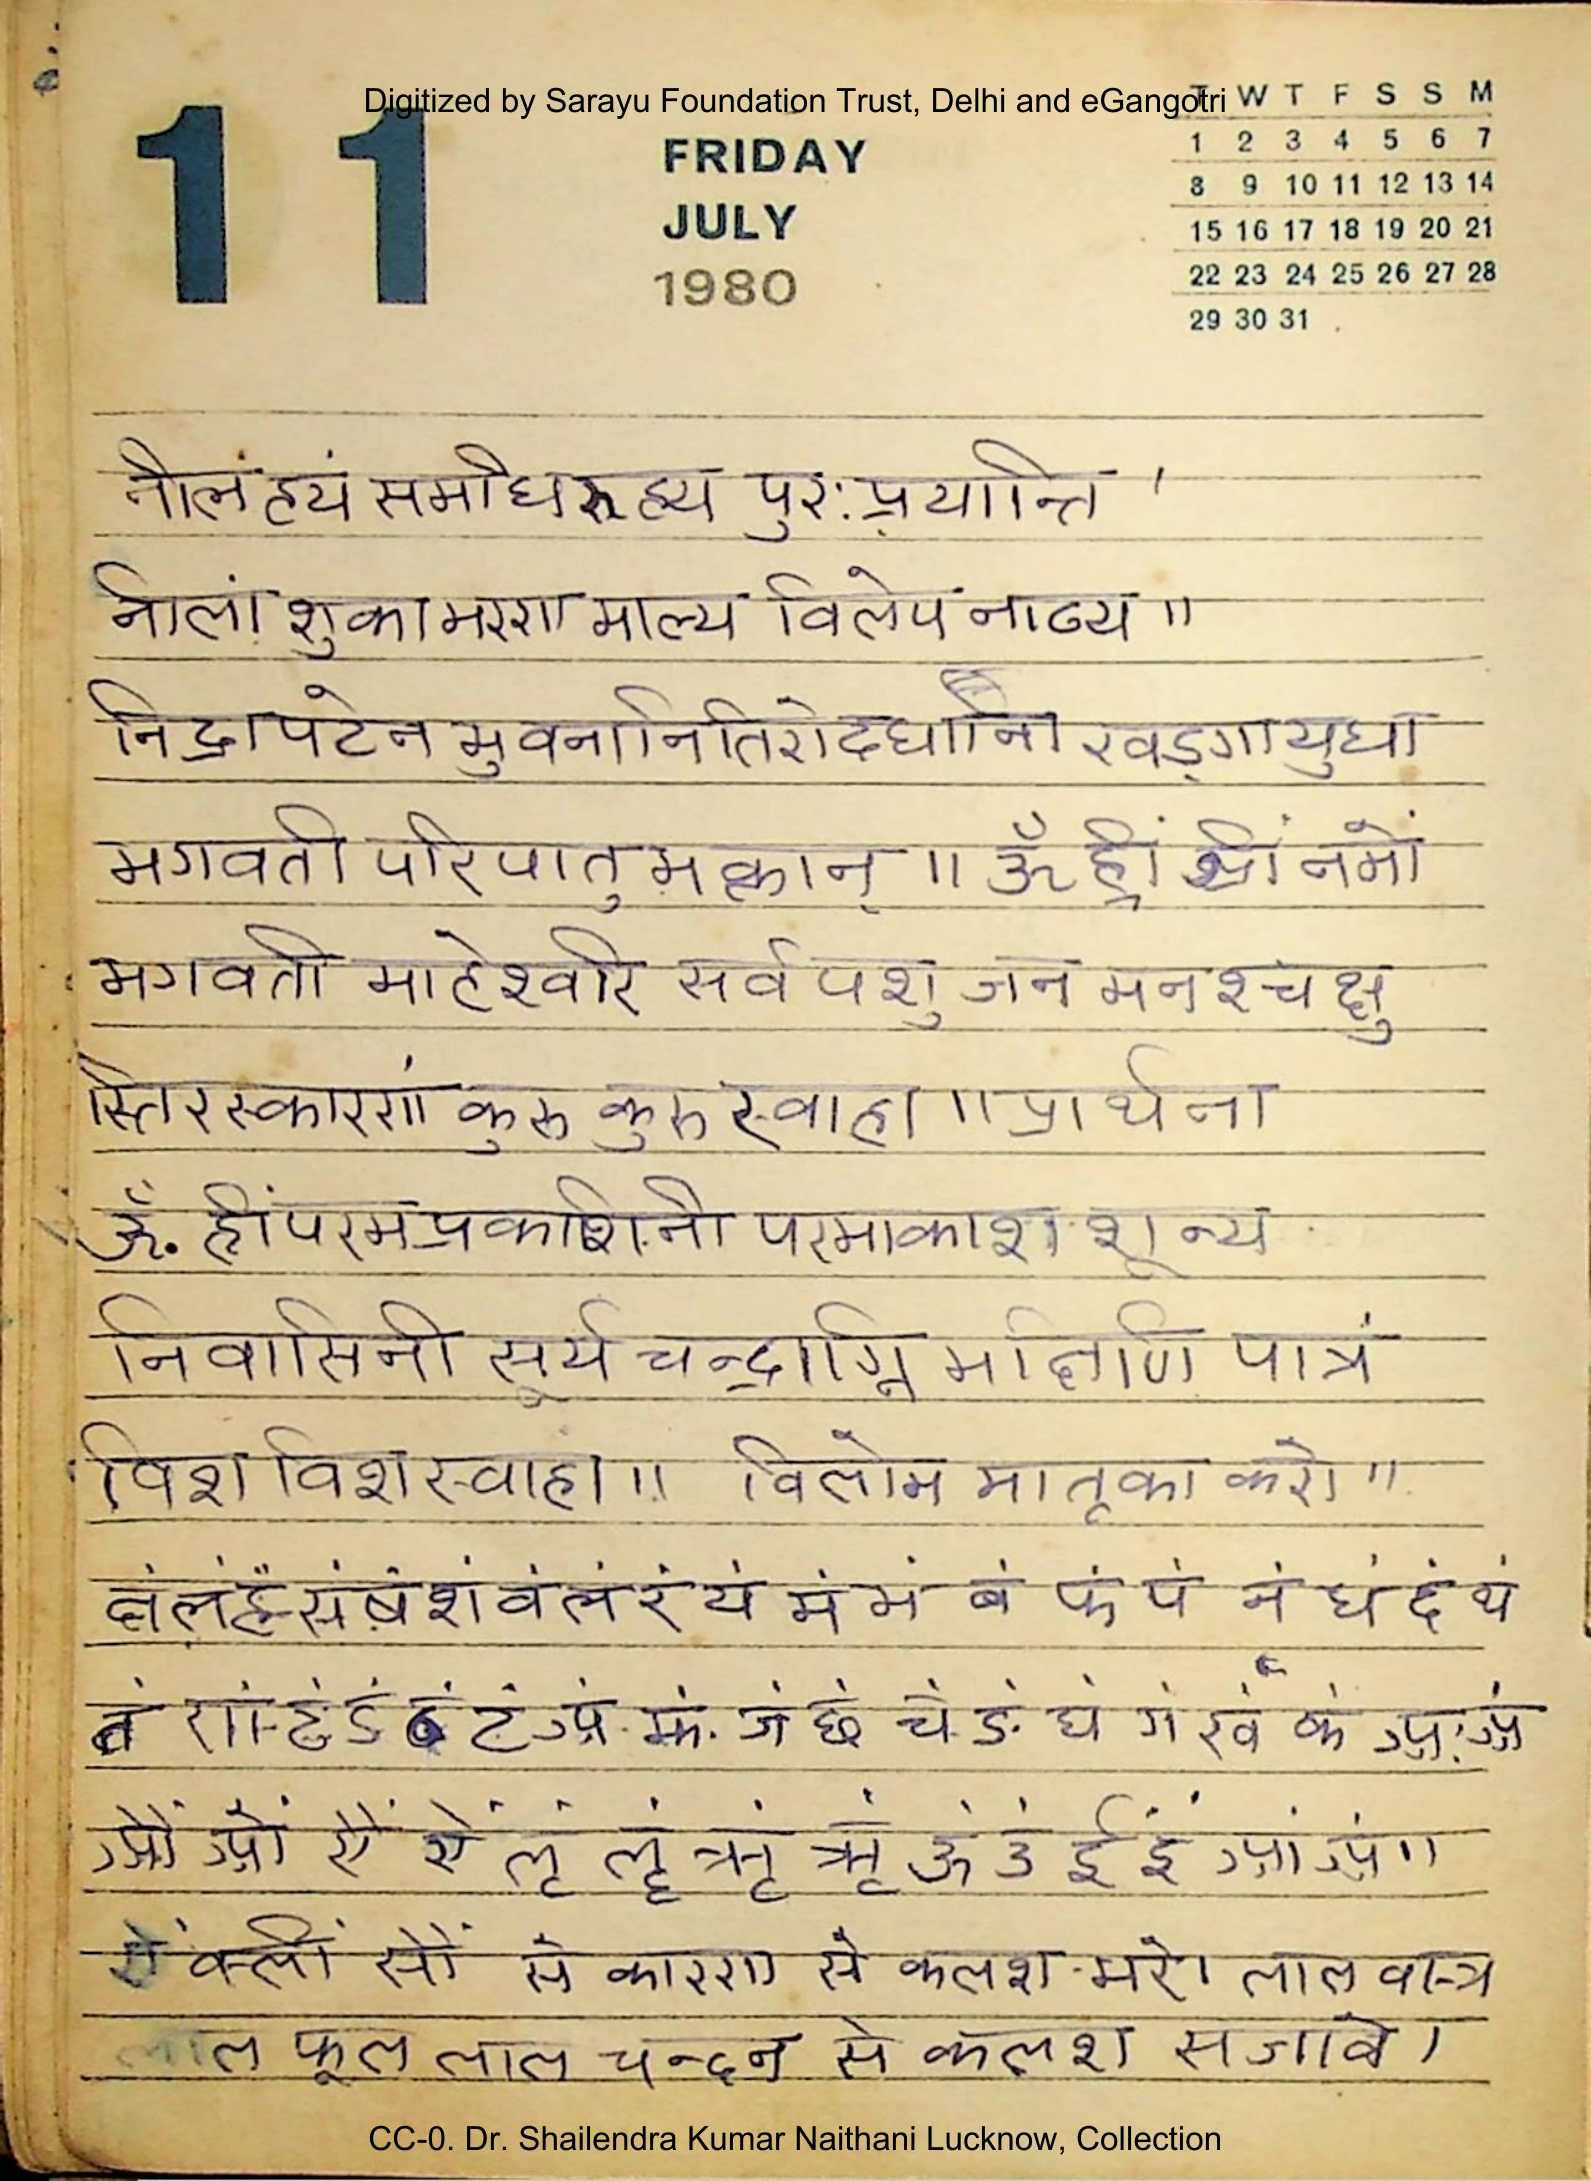 Digitized by Sarayu Foundation Trust, Delhi and eGangotri
11
FRIDAY
JULY
1980
T W T F S S M
1 2 3 4 5 6 7
8 9 10 11 12 13 14
15 16 17 18 19 20 21
22 23 24 25 26 27 28
29 30 31
नीलं हयं समधिरूह्य पुर: प्रयान्ति ।
नीलां शुकाभरण माल्य विलेपं नाढ्य ॥
निद्रा पटेन भुवनानि तिरोदधाना खड्गायुधा
भगवती परिपातु भक्तान् ॥ ॐ ह्रीं श्रीं नमों
भगवती माहेश्वरि सर्व पशु जन मनश्चक्षु
स्तिरस्कारणं कुरु कुरु स्वाहा ॥ प्रार्थना
ॐ. ह्रीं परमप्रकाशिनी परमाकाश शून्य
निवासिनी सूर्य चन्द्राग्नि भक्षिणि पात्रं
विश विश स्वाहा ॥ विलोम मातृका करो ॥
क्षं ळं हं सं षं शं वं लं रं यं मं भं बं फं पं नं धं दं थं
तं णं ढं डं ठं टं ञं झं जं छं चं ङं घं गं खं कं अ: अं
औं ओं ऐं एं लृं लॄं ऋं ॠं ऊं उं ईं इं आं अं ॥
ऐं क्लीं सौं से कारण से कलश भरे । लाल वस्त्र
लाल फूल लाल चन्दन से कलश सजावे ।
CC-0. Dr. Shailendra Kumar Naithani Lucknow, Collection